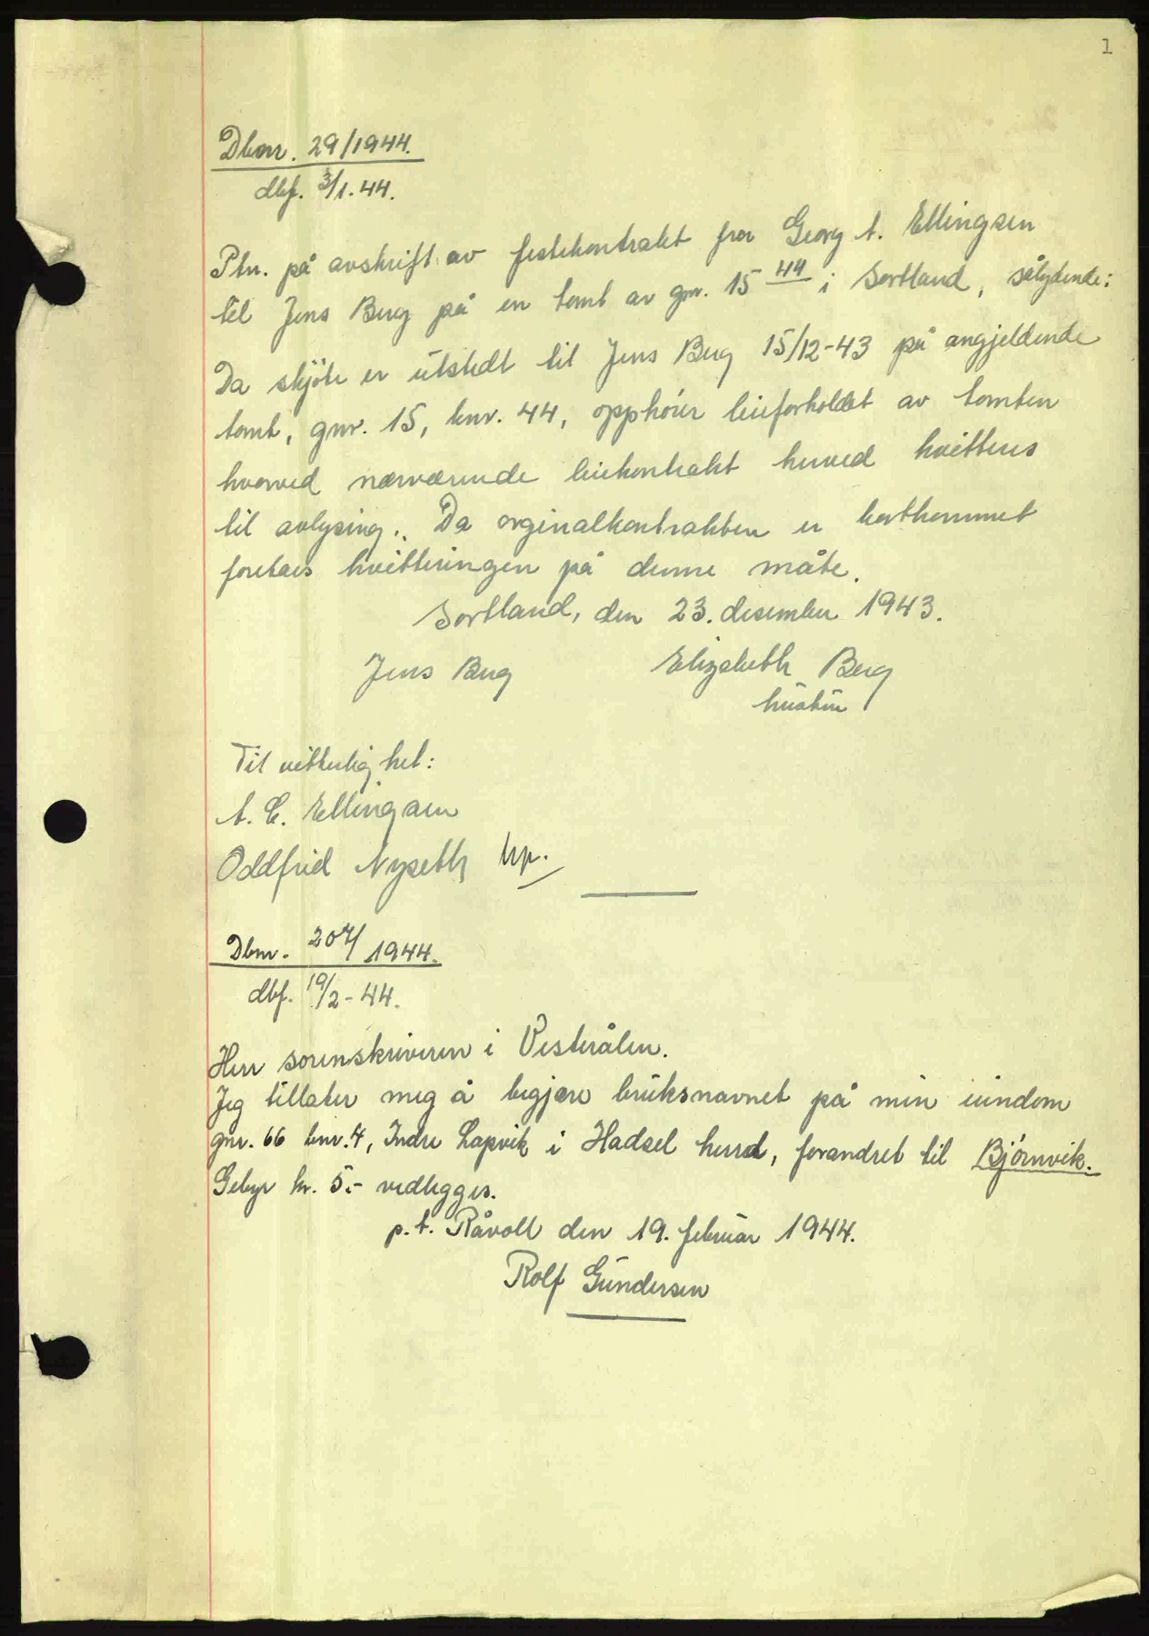 1
Dbnr. 29/1944.
dbf. 3/1.44.
Ptn. på avskrift av festekontrakt fra Georg A. Ellingsen
til Jens Berg på en tomt av gnr. 15 44 i Sortland, sålydende:
Da skjöte er utstedt til Jens Berg 15/12-43 på angjeldende
tomt, gnr. 15, bnr. 44, opphörer leieforholdet av tomten
hvorved nærværende leiekontrakt herved kvitteres
til avlysing. Da orginalkontrakten er bortkommet
foretaes kvitteringen på denne måte.
Sortland, den 23. desember 1943.
Jens Berg Elizabeth Berg
hustru
Til vitterlighet:
A. E. Ellingsen
Oddfrid Nyseth hp.
Dbnr. 207/1944.
dbf. 19/2-44.
Herr sorenskriveren i Vesterålen.
Jeg tillater meg å begjære bruksnavnet på min eiendom
gnr. 66 bnr. 7, Indre Lapvik i Hadsel herred, forandret til Björnvik.
Gebyr kr. 5.- vedlegges.
p.t. Råvoll den 19. februar 1944.
Rolf Gundersen